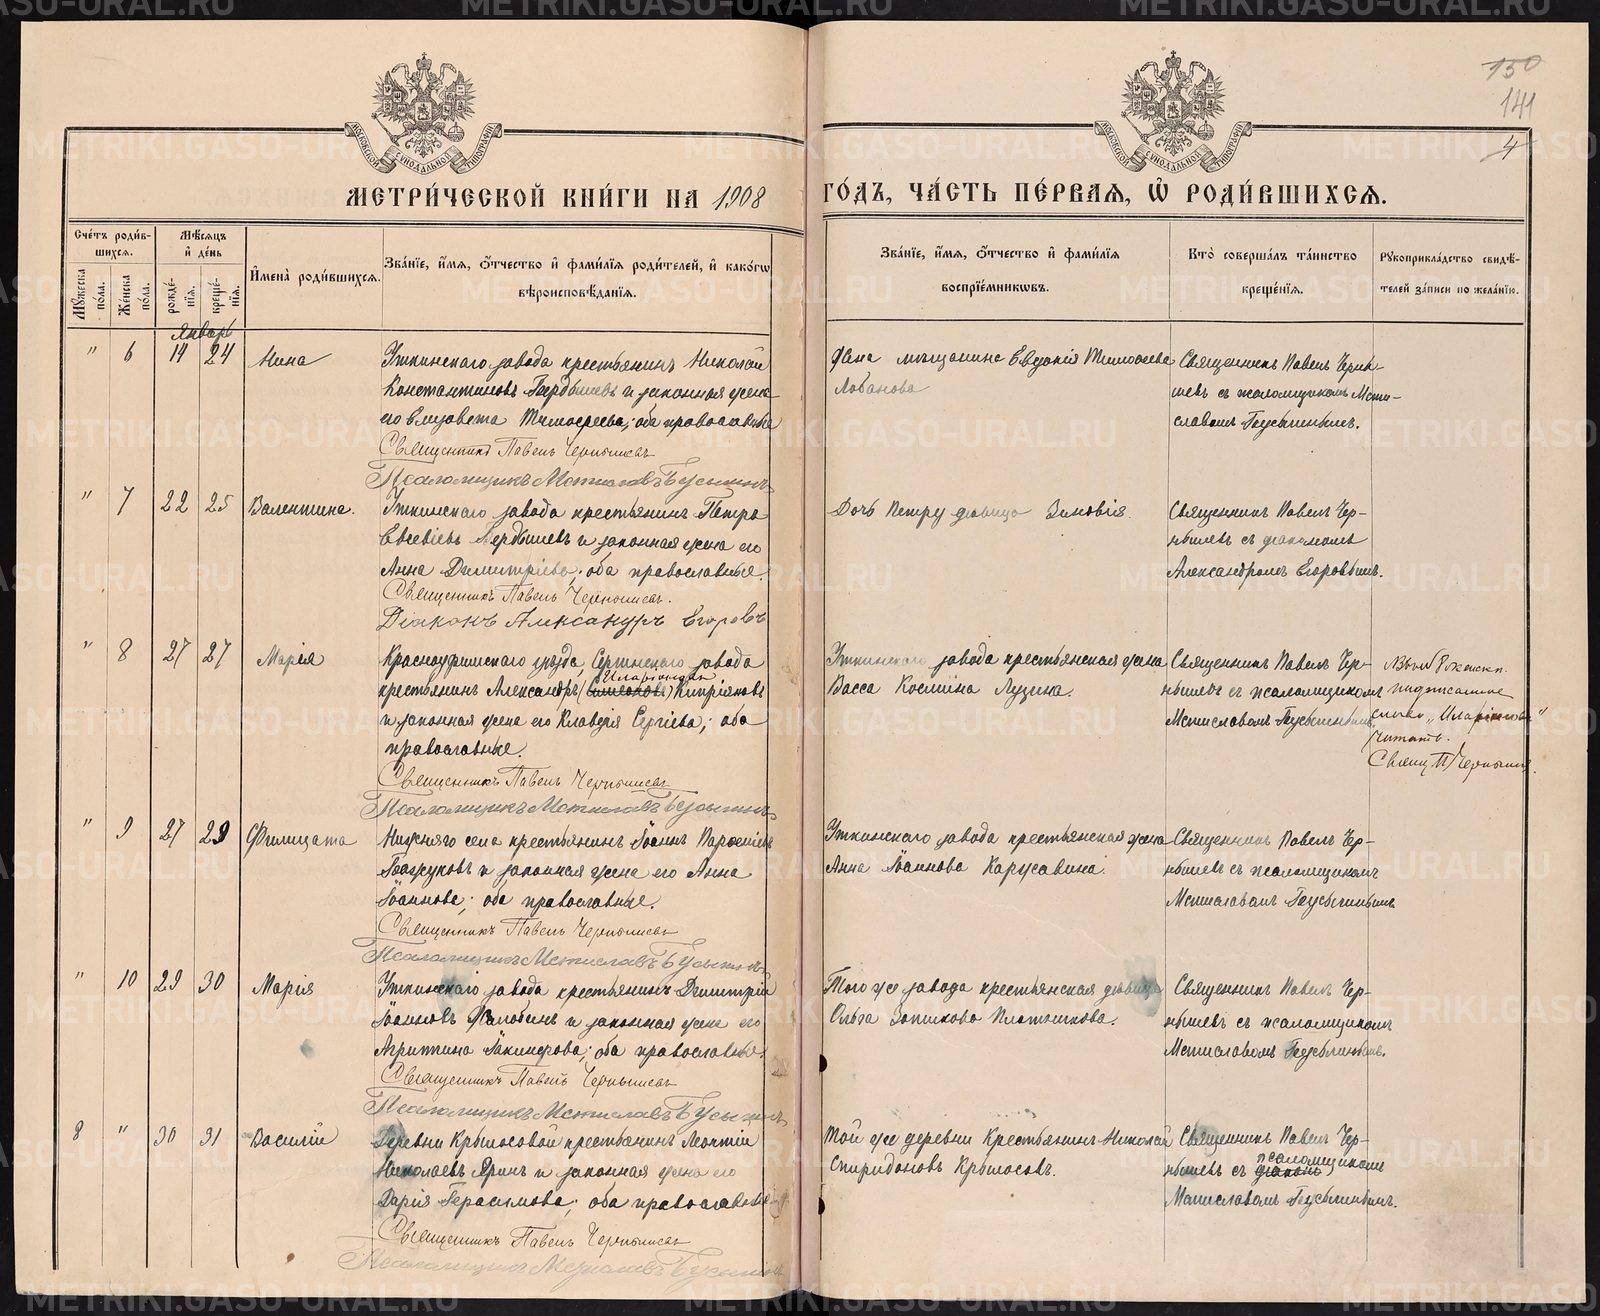 METRIKI.GASO-URAL.RU
150
141
4
МОСКОВСКОЙ СИНОДАЛЬНОЙ ТИПОГРАФІИ
МОСКОВСКОЙ СИНОДАЛЬНОЙ ТИПОГРАФІИ
МЕТРИ́ЧЕСКОЙ КНИ́ГИ НА 1908 ГО́ДЪ, ЧА́СТЬ ПЕ́РВАѦ, Ѡ РОДИ́ВШИХСѦ.
Сче́тъ роди́в-
шихсѧ.
Мѣ́сѧцъ
и҆ де́нь
Мꙋ́жеска по́ла.
Же́нска по́ла.
рожде́-
нїѧ.
креще́-
нїѧ.
И҆мена̀ роди́вшихсѧ.
Зва́нїе, и҆́мѧ, ѻ҆́тчество и҆ фами́лїѧ роди́телей, и҆ како́гѡ
вѣроисповѣ́данїѧ.
Зва́нїе, и҆́мѧ, ѻ҆́тчество и҆ фами́лїѧ
воспрїе́мникѡвъ.
Кто̀ соверша́лъ та́инство
креще́нїѧ.
Рꙋкоприкла́дство свидѣ́-
телей за́писи по жела́нїю.
Январь
" 6 19 24 Нина
Уткинскаго завода крестьянинъ Николай
Константиновъ и законная жена
его Елизавета Тимоѳеева; оба православные
Священникъ Павелъ Чернышевъ
Псаломщикъ Мстиславъ Бусыгинъ
Жена мѣщанина Евдокія Тимоѳеева
Лобанова
Священникъ Павелъ Черны-
шевъ съ псаломщикомъ Мсти-
славомъ Бусыгинымъ.
" 7 22 25 Валентина.
Уткинскаго завода крестьянинъ Петръ
Евсевіевъ и законная жена его
Анна Димитріева; оба православные.
Священникъ Павелъ Чернышевъ.
Діаконъ Александръ Егоровъ
Дочь Петру дѣвица Зиновія.
Священникъ Павелъ Чер-
нышевъ съ діакономъ
Александромъ Егоровымъ.
" 8 27 27 Марія
Красноуфимскаго уѣзда, Сергинскаго завода
Иларіоновъ
крестьянинъ Александръ ( ) Кипріяновъ
и законная жена его Клавдія Сергіева; оба
православные.
Священникъ Павелъ Чернышевъ
Псаломщикъ Мстиславъ Бусыгинъ
Уткинскаго завода крестьянская жена
Васса Космина Лузина.
Священникъ Павелъ Чер-
нышевъ съ псаломщикомъ
Мстиславомъ Бусыгинымъ
8 женск.
надписанное
слово „Иларіоновъ"
читать.
Свящ. П. Чернышевъ.
" 9 27 29 Филицата
Нижняго села крестьянинъ Іоаннъ
и законная жена его Анна
Іоаннова; оба православные.
Священникъ Павелъ Чернышевъ
Псаломщикъ Мстиславъ Бусыгинъ
Уткинскаго завода крестьянская жена
Анна Іоаннова Карусавина.
Священникъ Павелъ Чер-
нышевъ съ псаломщикомъ
Мстиславомъ Бусыгинымъ
" 10 29 30 Марія
Уткинскаго завода крестьянинъ Димитрій
Іоанновъ и законная жена его
Агриппина Іакинфова; оба православные.
Священникъ Павелъ Чернышевъ
Псаломщикъ Мстиславъ Бусыгинъ
Того же завода крестьянская дѣвица
Ольга Платошкова.
Священникъ Павелъ Чер-
нышевъ съ псаломщикомъ
Мстиславомъ Бусыгинымъ.
8 " 30 31 Василій
Деревни Крылосовой крестьянинъ Леонтій
Николаевъ и законная жена его
Дарія Герасимова; оба православные
Священникъ Павелъ Чернышевъ
Псаломщикъ Мстиславъ Бусыгинъ
Той же деревни Крестьянинъ Николай
Спиридоновъ Крылосовъ.
Священникъ Павелъ Чер-
нышевъ съ псаломщикомъ
Мстиславомъ Бусыгинымъ.